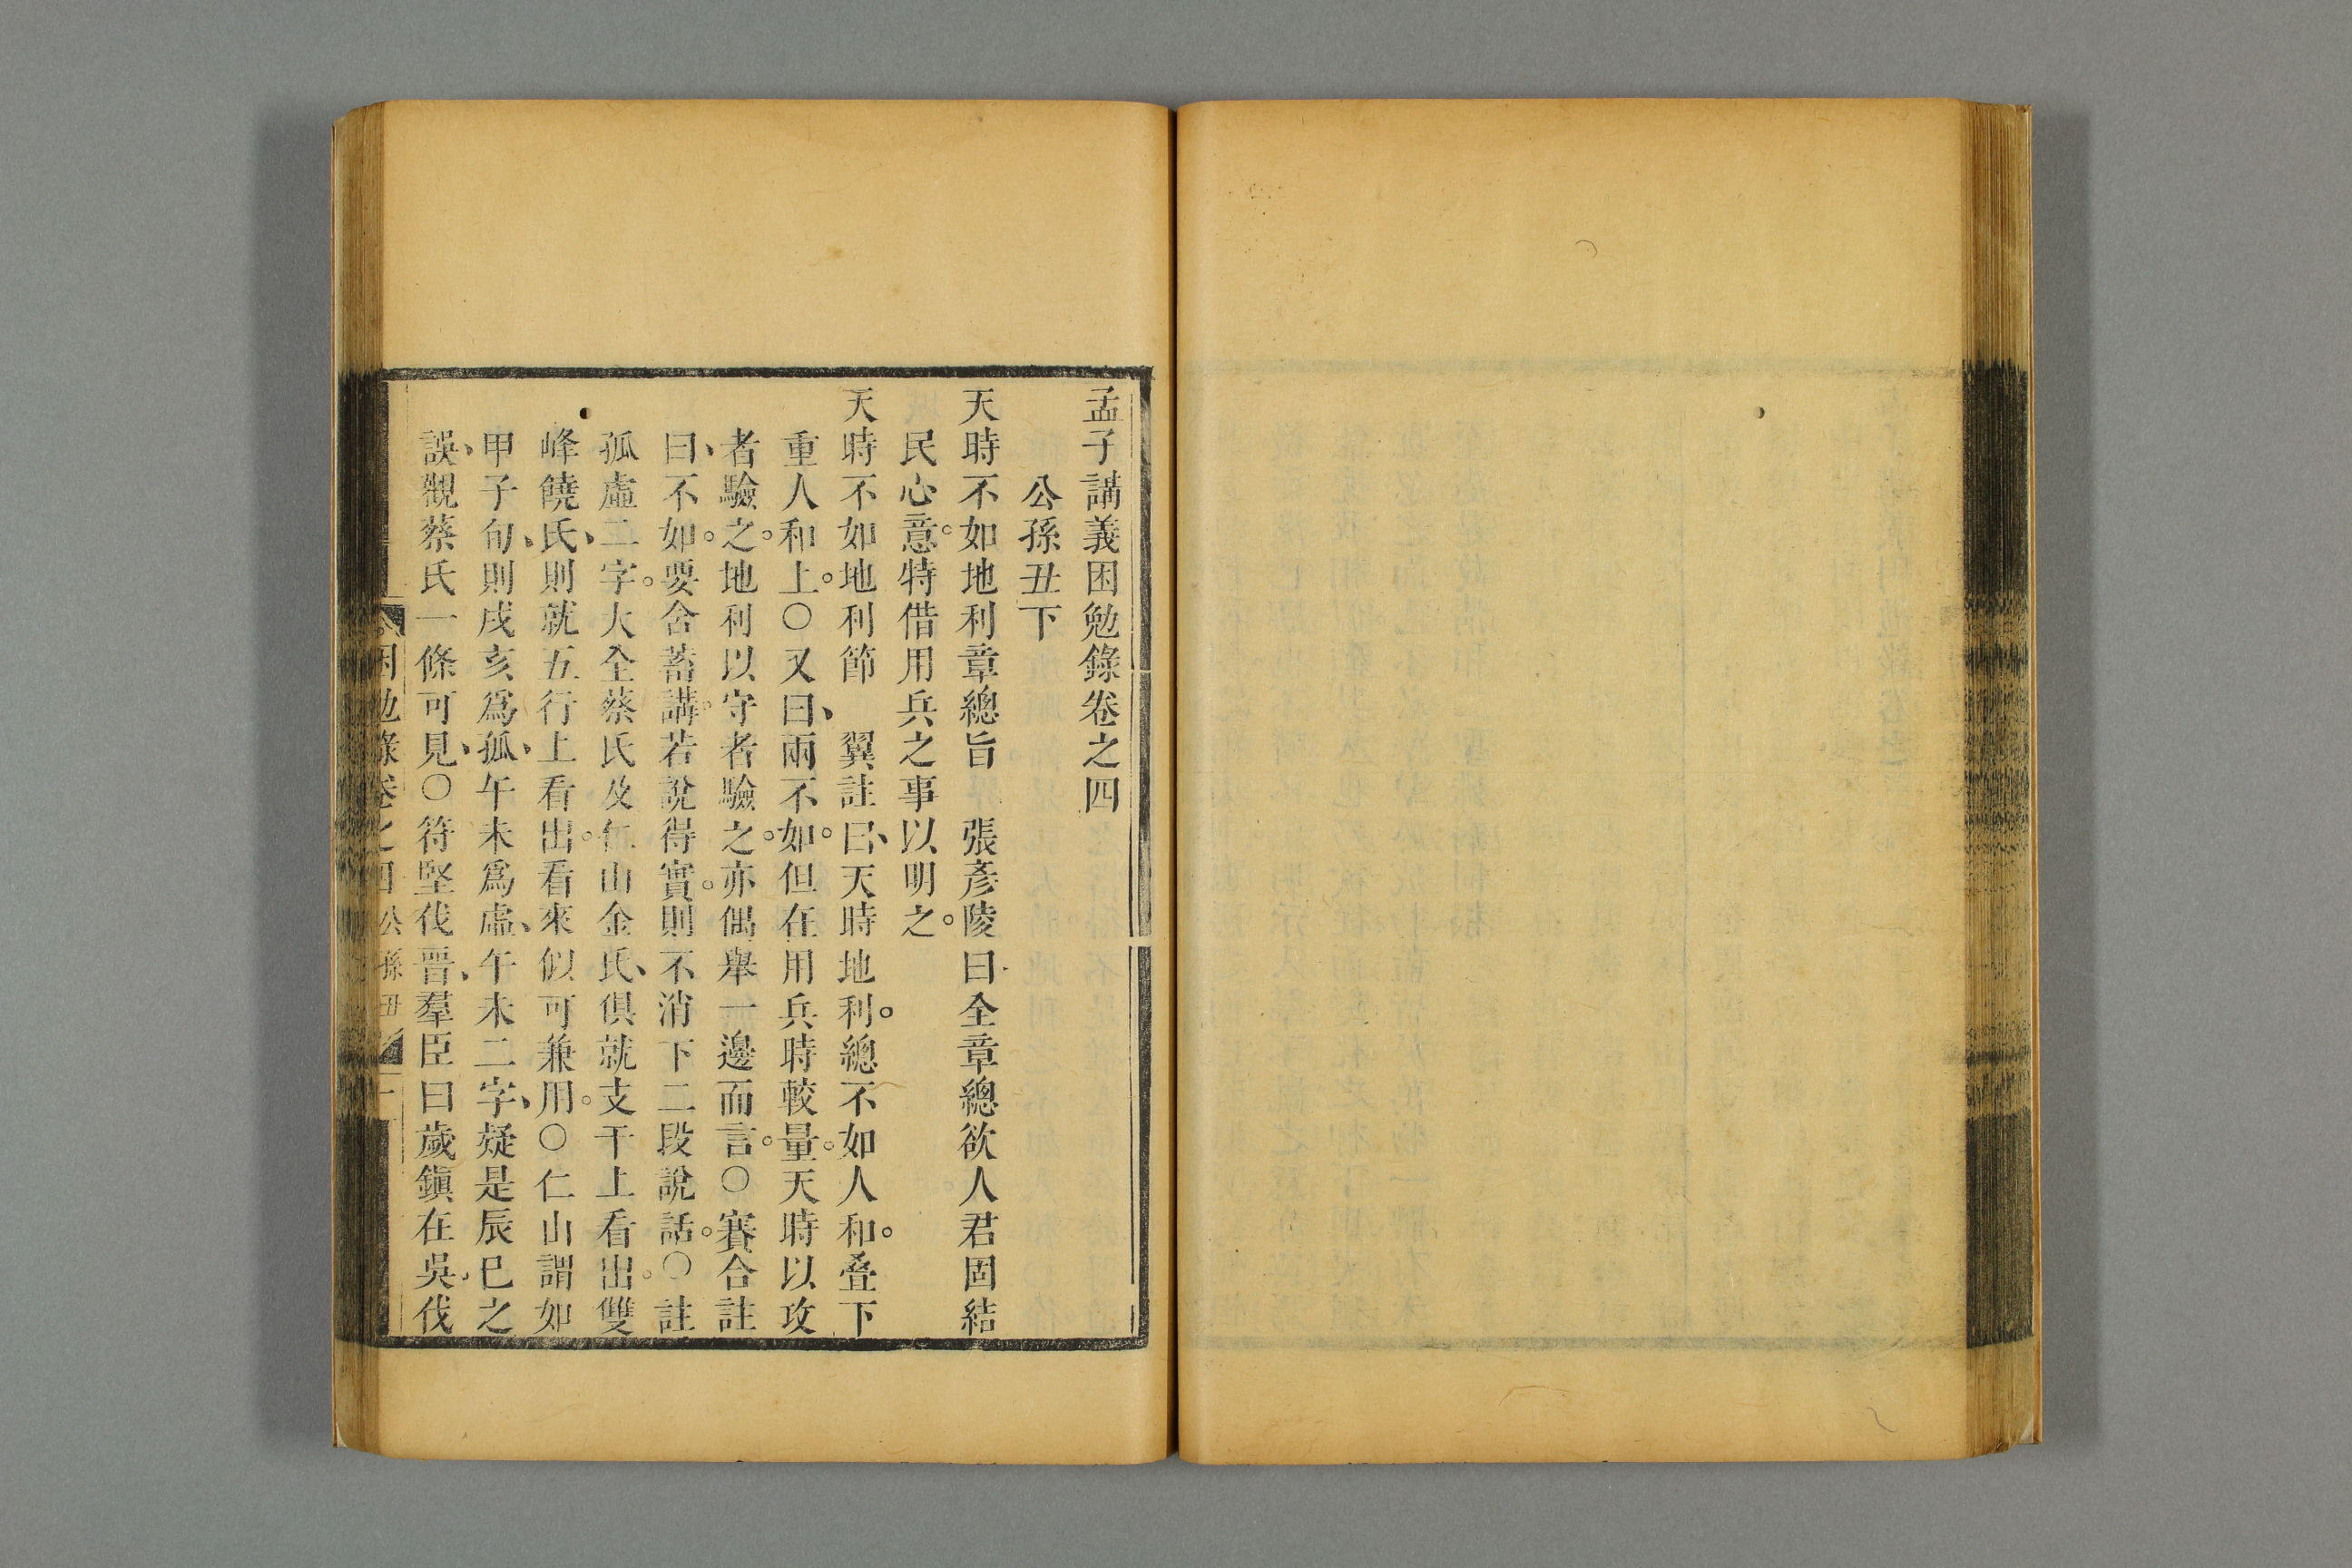 孟子講義困勉錄卷之四
公孫丑下
天時不如地利章總旨　張彥陵曰全章總欲人君固結
民心意。特借用兵之事以明之。
天時不如地利節　翼註曰、天時地利。總不如人和。叠下
重人和上。○又曰、兩不如。但在用兵時較量。天時以攻
者驗之。地利以守者驗之。亦偶舉一邊而言。○賽合註
曰、不如。要含蓄講。若說得實。則不消下二段說話。○註
孤虛二字。大全蔡氏及仁山金氏、俱就支干上看出。雙
峰饒氏、則就五行上看出。看來似可兼用。○仁山謂如
甲子旬、則戌亥爲孤、午未爲虛、午未二字、疑是辰巳之
誤、觀蔡氏一條可見、○符堅伐晋、羣臣曰歲鎭在吳、伐
困勉錄卷之四 公孫丑 一